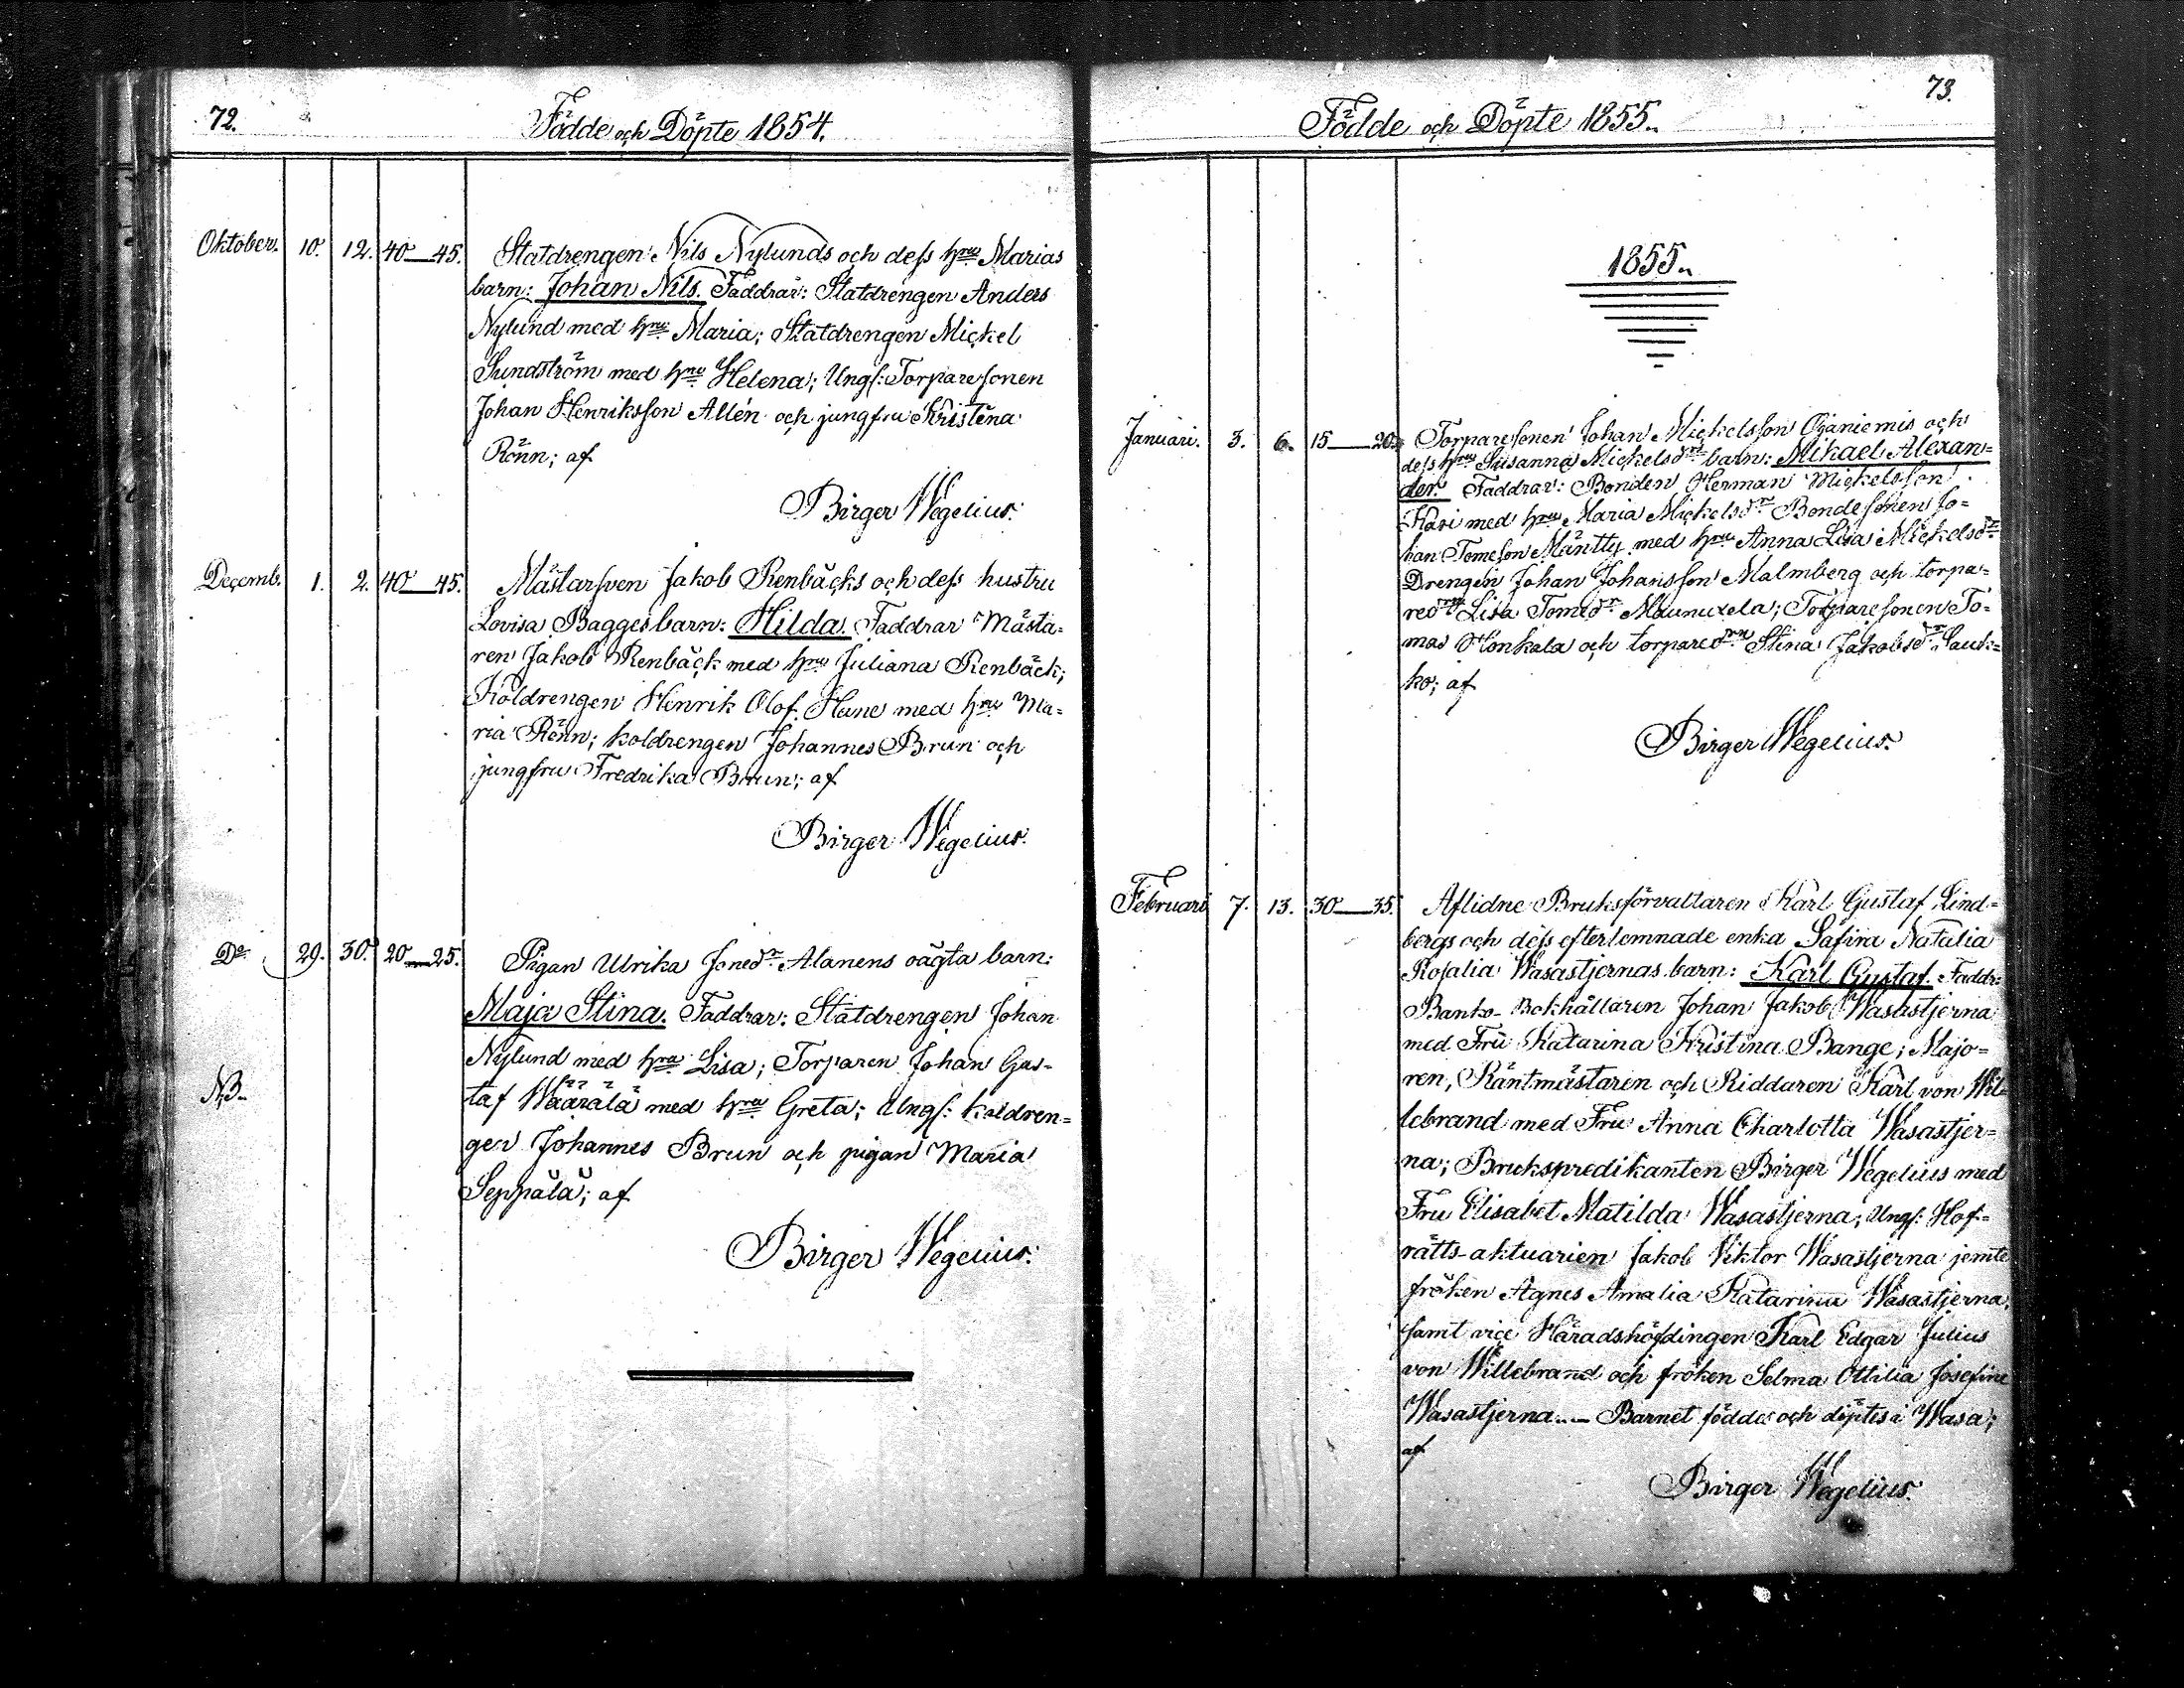 72.
Födde och Döpte 1854.
Oktober. 10. 12. 40—45. Statdrengen Nils Nylunds och dess hru Marias
barn: Johan Nils. Faddrar: Statdrengen Anders
Nylund med hru Maria; Statdrengen Mickel
Sundström med hru Helena; Ungs: Torparesonen
Johan Henriksson Allén och jungfru Kristina
Rönn; af
Birger Wegelius.
Decemb. 1. 2. 40—45. Mästarsven Jakob Renbäcks och dess hustru
Lovisa Bagges barn: Hilda. Faddrar Mästa=
ren Jakob Renbäck med hru Juliana Renbäck;
Koldrengen Henrik Olof Hane med hru Ma=
ria Rönn; koldrengen Johannes Brun och
jungfru Fredrika Brun; af
Birger Wegelius.
Do 29. 30. 20—25. Pigan Ulrika Jonedr Alanens oägta barn:
Maja Stina. Faddrar: Statdrengen Johan
Nylund med hru Lisa; Torparen Johan Gus=
NB. taf Wäärälä med hru Greta; Ungs: koldren=
gen Johannes Brun och pigan Maria
Seppälä; af
Birger Wegelius.
73.
Födde och Döpte 1855.
1855.
Januari. 3. 6. 15—20. Torparesonen Johan Mickelsson Ojaniemis och
dess hru Susanna Mickelsdrs barn: Mikael Alexan=
der. Faddrar: Bonden Herman Mickelsson
Kari med hru Maria Mickelsdr Bondesonen Jo=
han Tomeson Mäntty med hru Anna Lisa Mickelsdr
Drengen Johan Johansson Malmberg och torpa=
redrn Lisa Tomedr Maunuxela; Torparesonen To=
mas Honkala och torparedrn Stina Jakobsdr Lauk=
ko; af
Birger Wegelius.
Februari 7. 13. 30—35. Aflidne Bruksförvaltaren Karl Gustaf Lind=
bergs och dess efterlemnade enka Safira Natalia
Rosalia Wasastjernas barn: Karl Gustaf. Faddr:
Banko-Bokhållaren Johan Jakob Wasastjerna
med Fru Katarina Kristina Bange; Majo=
ren, Räntmästaren och Riddaren Karl von Wil=
lebrand med Fru Anna Charlotta Wasastjer=
na; Brukspredikanten Birger Wegelius med
Fru Elisabet Matilda Wasastjerna; Ungs: Hof=
rätts-aktuarien Jakob Viktor Wasastjerna jemte
fröken Agnes Amalia Katarina Wasastjerna,
samt vice Häradshöfdingen Karl Edgar Julius
von Willebrand och fröken Selma Ottilia Josefine
Wasastjerna.— Barnet föddes och döptes i Wasa;
af
Birger Wegelius.